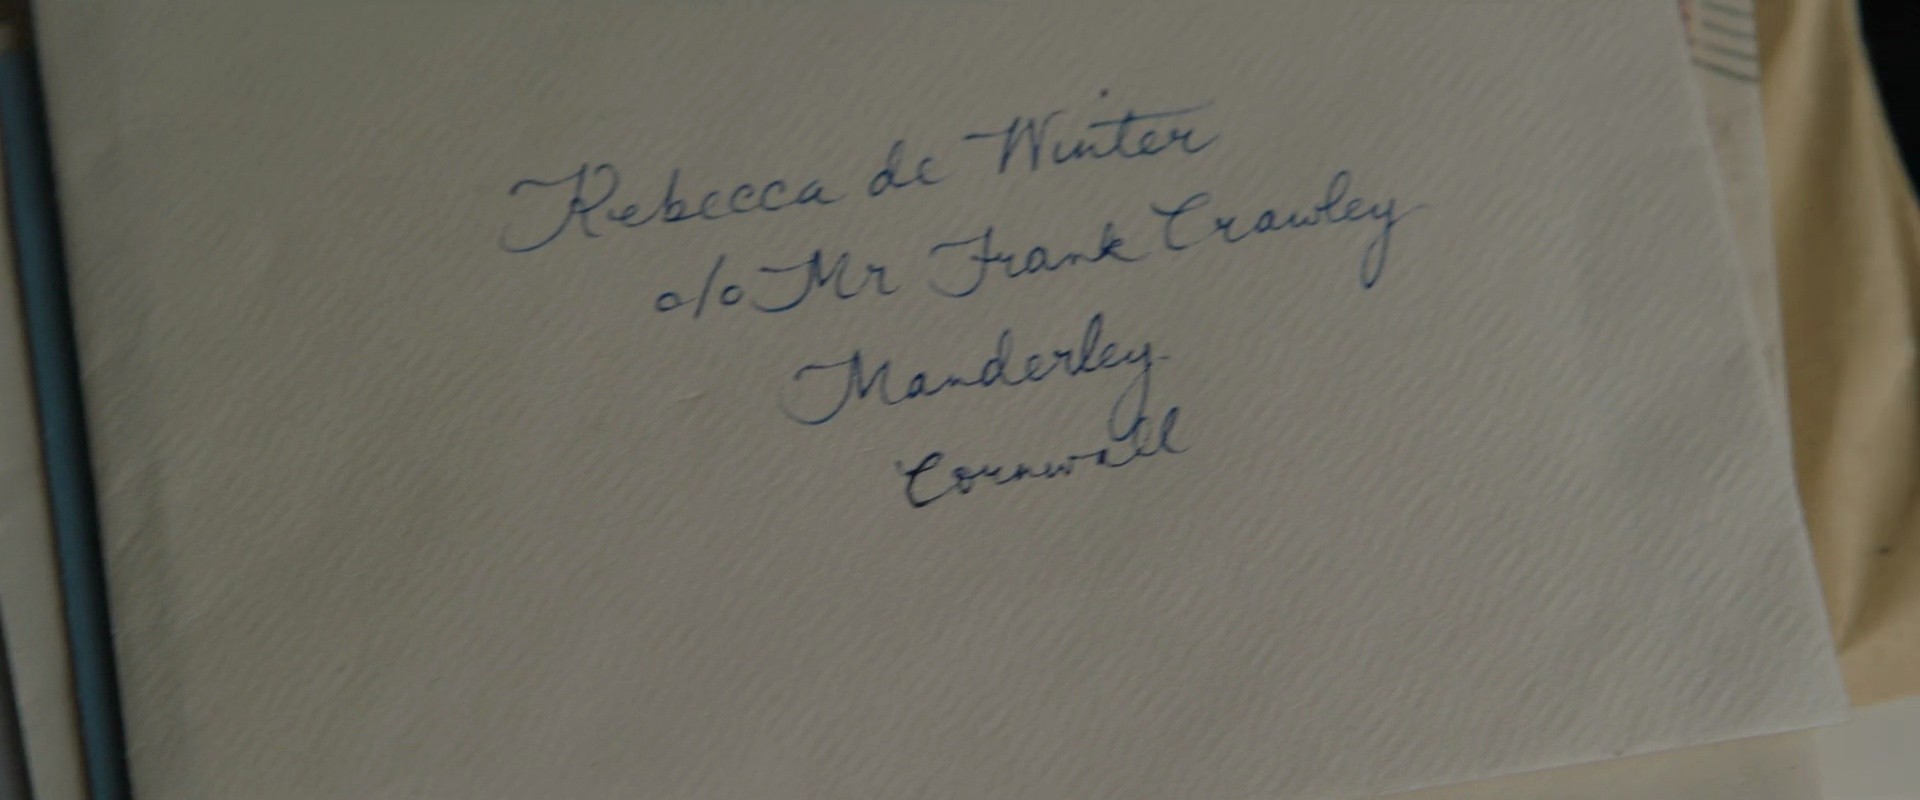 Rebecca de Winter
c/o Mr Frank Crawley
Manderley
Cornwall